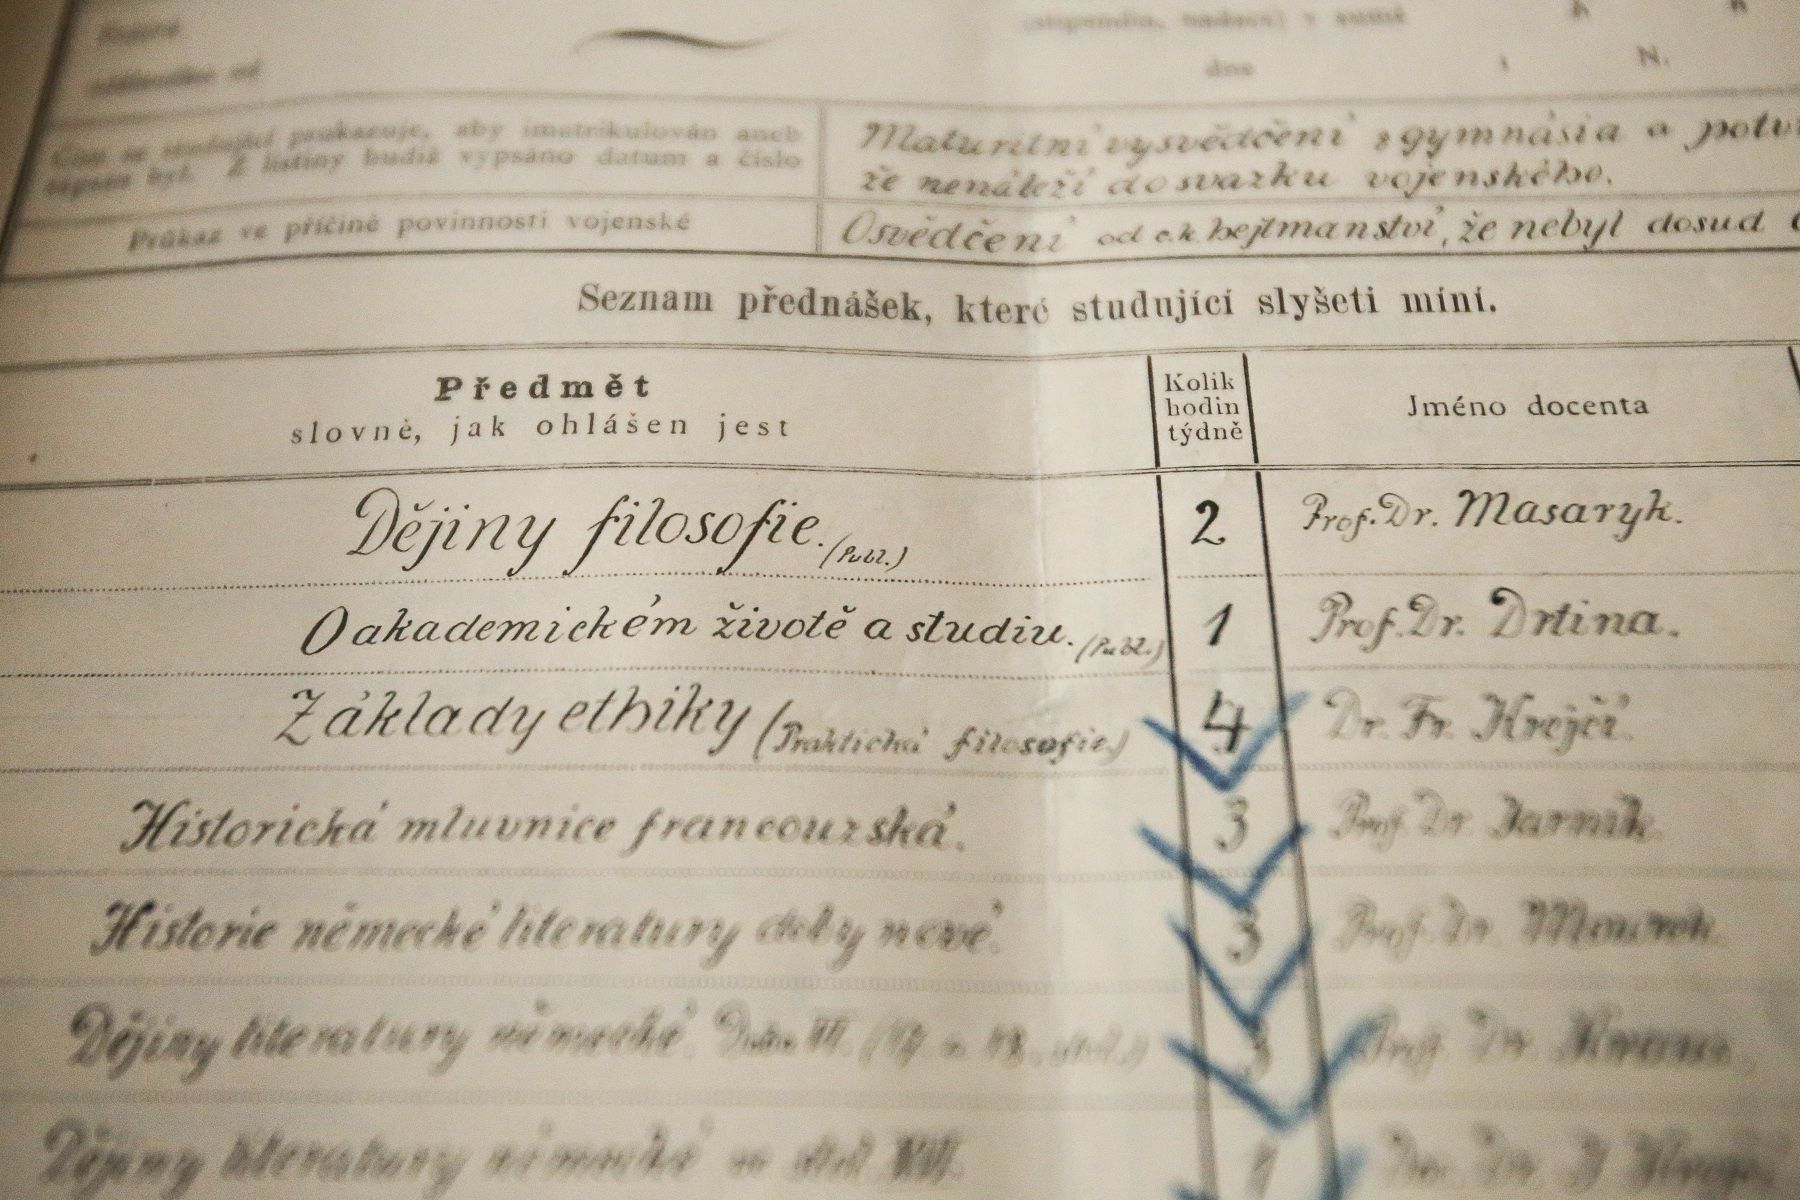 (stipendia, nadace) v sumě
dne
N.
prokazuje, aby imatrikulován aneb
byl. Z listiny budiž vypsáno datum a číslo
Maturitní vysvědčení z gymnásia a
že nenáleží do svazku vojenského.
Průkaz ve příčině povinnosti vojenské
Osvědčení od c.k. hejtmanství, že nebyl dosud
Seznam přednášek, které studující slyšeti míní.
Předmět
slovně, jak ohlášen jest
Kolik
hodin
týdně
Jméno docenta
Dějiny filosofie. (Publ.) 2 Prof. Dr. Masaryk.
O akademickém životě a studiu. (Publ.) 1 Prof. Dr. Drtina.
Základy ethiky (Praktická filosofie.) 4 Dr. Fr. Krejčí.
Historická mluvnice francouzská. 3 Prof. Dr. Jarník.
Historie německé literatury doby nové. 3 Prof. Dr. Mourek.
Dějiny literatury německé. 3 Prof. Dr. Kraus
Dějiny literatury německé